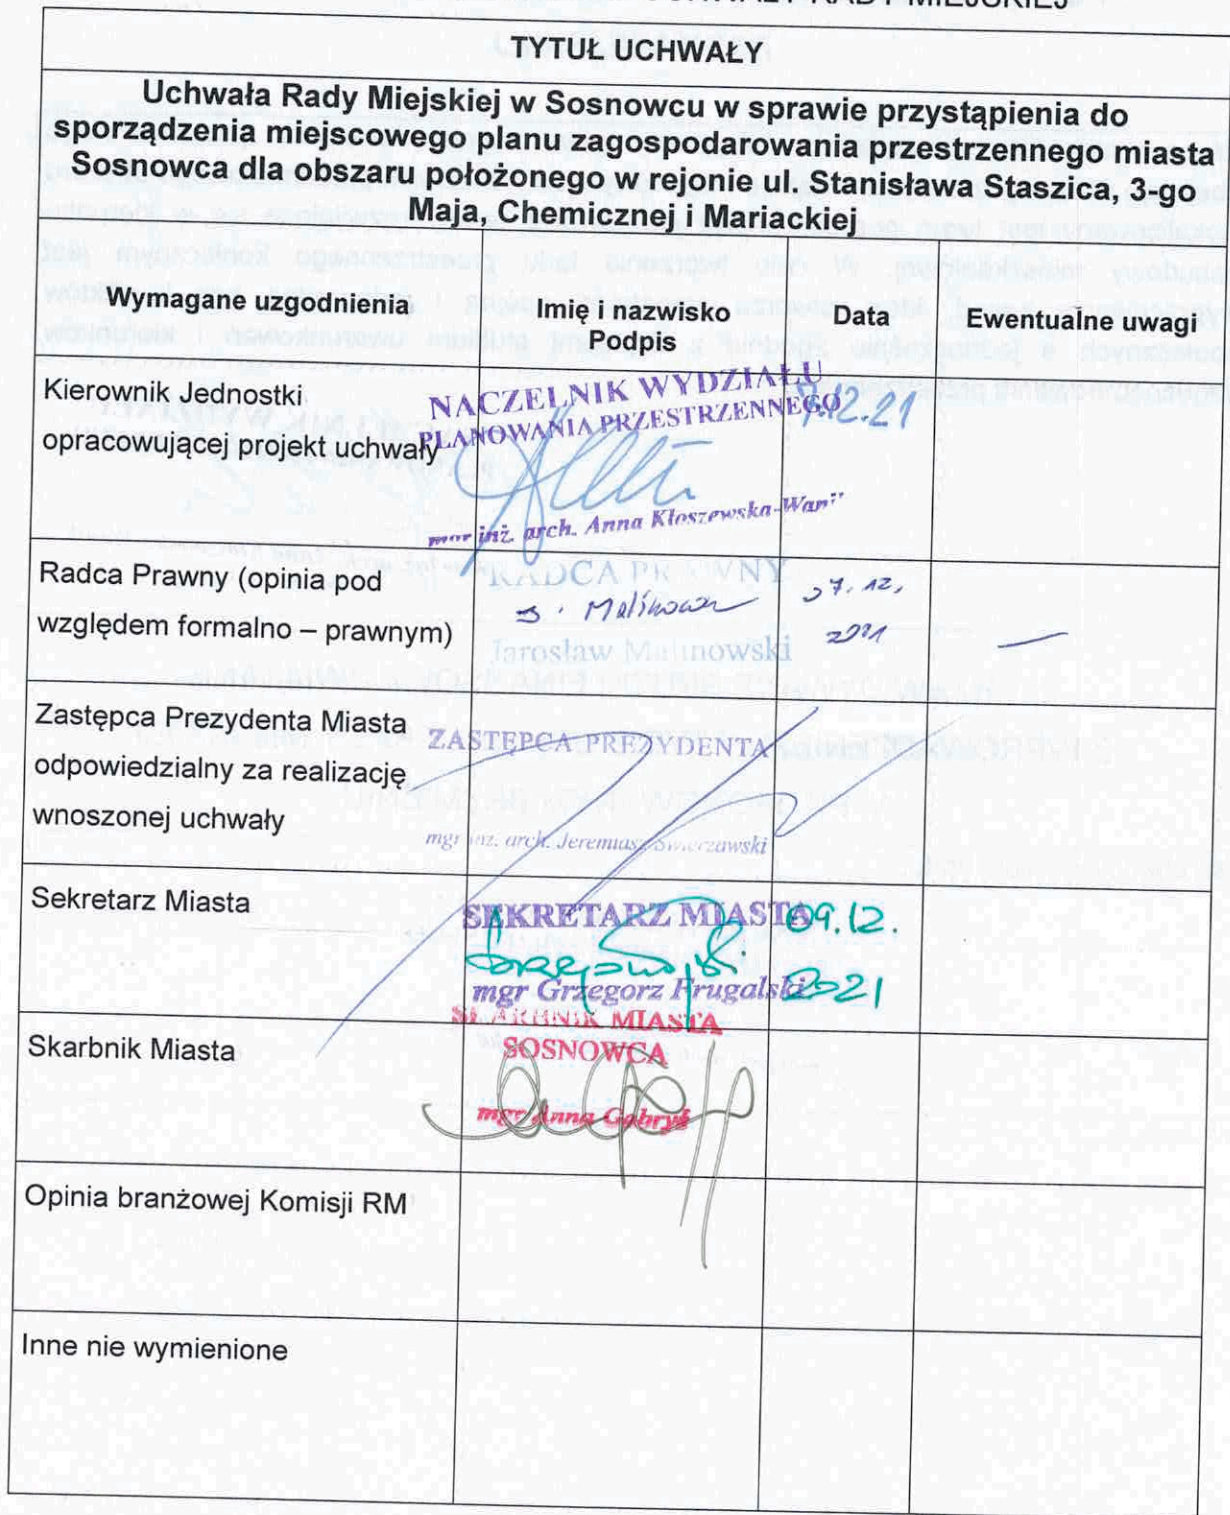 UCHWAŁY RADY MIEJSKIEJ
TYTUŁ UCHWAŁY
Uchwała Rady Miejskiej w Sosnowcu w sprawie przystąpienia do
sporządzenia miejscowego planu zagospodarowania przestrzennego miasta
Sosnowca dla obszaru położonego w rejonie ul. Stanisława Staszica, 3-go
Maja, Chemicznej i Mariackiej
Wymagane uzgodnienia
Imię i nazwisko
Podpis
Data
Ewentualne uwagi
Kierownik Jednostki
opracowującej projekt uchwały
NACZELNIK WYDZIAŁU
PLANOWANIA PRZESTRZENNEGO
mgr inż. arch. Anna Kłoszewska-
7.12.21
Radca Prawny (opinia pod
względem formalno – prawnym)
RADCA PRAWNY
Jarosław Malinowski
07.12.
2021
—
Zastępca Prezydenta Miasta
odpowiedzialny za realizację
wnoszonej uchwały
ZASTĘPCA PREZYDENTA
mgr inż. arch. Jeremiasz Świerzawski
Sekretarz Miasta
SEKRETARZ MIASTA
mgr Grzegorz Frugalski
09.12.
2021
Skarbnik Miasta
SKARBNIK MIASTA
SOSNOWCA
mgr Anna Gabryś
Opinia branżowej Komisji RM
Inne nie wymienione